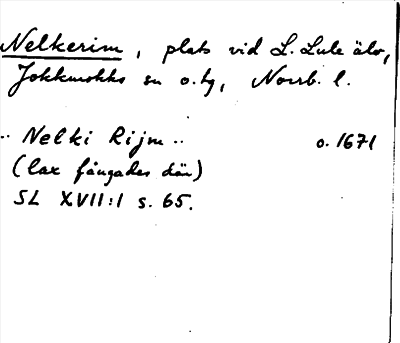 Nelkerim, plats vid L. Lule älv,
Jokkmokks sn o. tg, Norrb. l.
.. Nelki Rijm .. o. 1671
(lax fångades där)
SL XVII:1 s. 65.